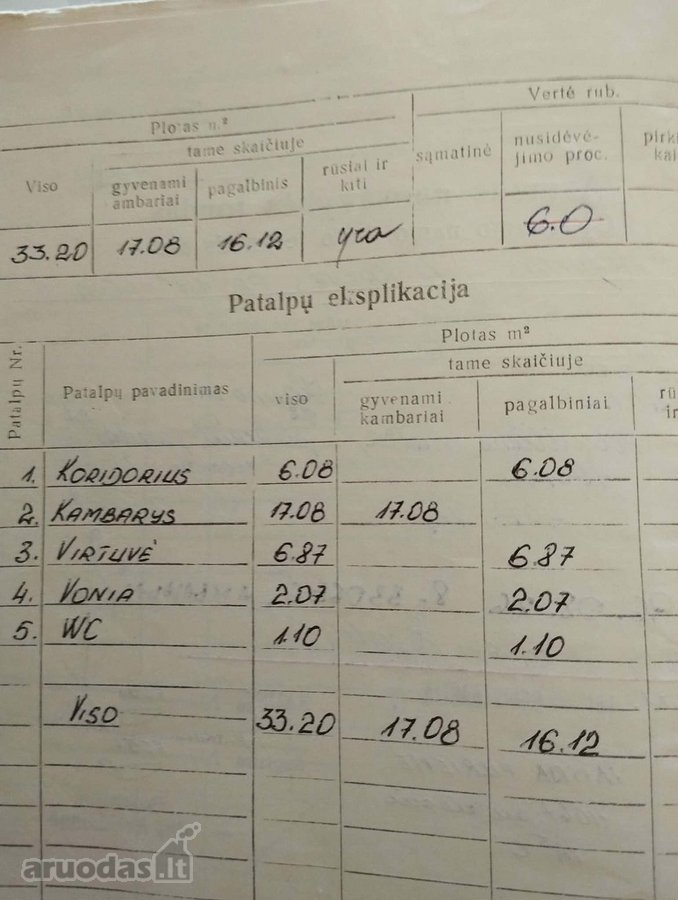 Plotas m.² Vertė rub.
tame skaičiuje
Viso gyvenami ambariai pagalbinis rūsiai ir kiti sąmatinė nusidėvė-jimo proc. pirk kai
33.20 17.08 16.12 yra 6.0
Patalpų eksplikacija
Patalpų Nr. Patalpų pavadinimas Plotas m²
viso tame skaičiuje
gyvenami kambariai pagalbiniai rū ir
1. KORIDORIUS 6.08 6.08
2. KAMBARYS 17.08 17.08
3. VIRTUVĖ 6.87 6.87
4. VONIA 2.07 2.07
5. WC 1.10 1.10
VISO 33.20 17.08 16.12
aruodas.lt